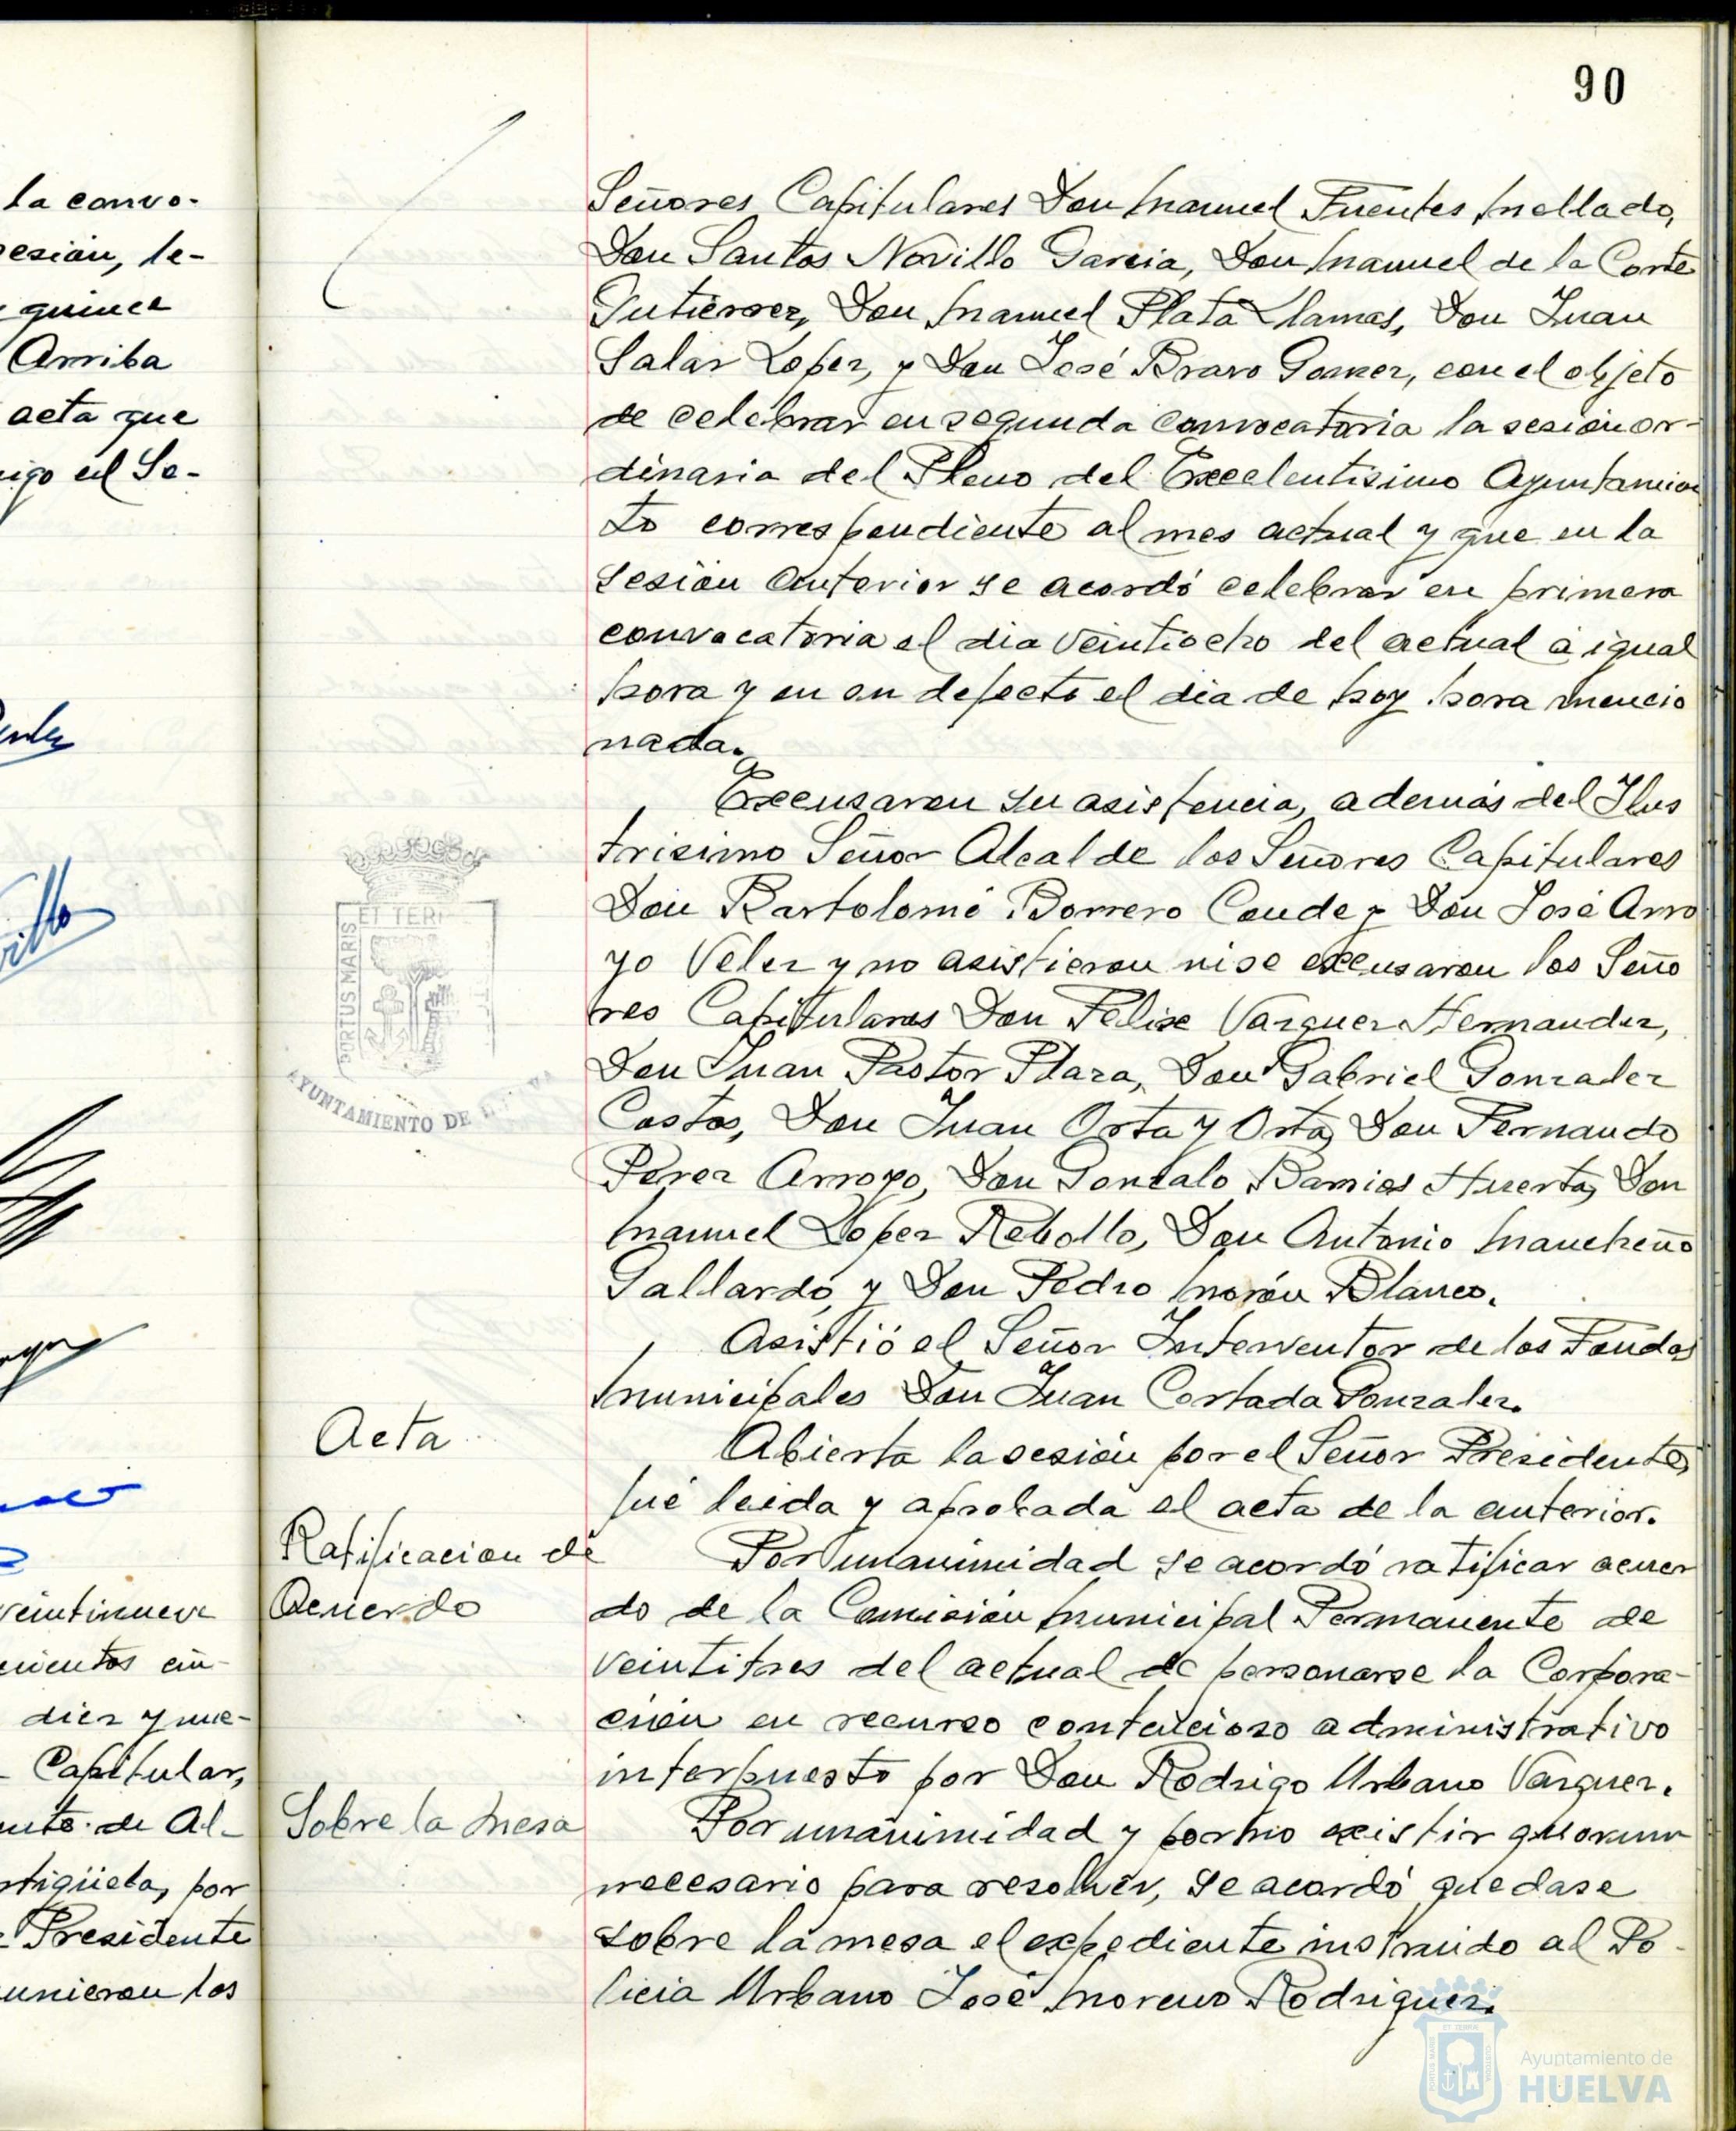 la convo-
esión, le-
quince
Arriba
acta que
igo el Se-
veintinueve
cientos cin-
diez y nue-
Capitular,
ente de Al-
por
Presidente
unieron los
90
Señores Capitulares Don Manuel Fuentes Mellado,
Don Santos Novillo Garcia, Don Manuel de la Corte
Gutierrez, Don Manuel Plata Llamas, Don Juan
Salas Lopez, y Don José Bravo Gomez, con el objeto
de celebrar en segunda convocatoria la sesión or-
dinaria del Pleno del Excelentisimo Ayuntamien
to correspondiente al mes actual y que en la
sesión anterior se acordó celebrar en primera
convocatoria el dia veintiocho del actual á igual
hora y en su defecto el dia de hoy hora mencio
nada.
Excusaron su asistencia, además del Ilus
trisimo Señor Alcalde los Señores Capitulares
Don Bartolomé Borrero Conde y Don José Arro
yo Velez y no asistieron ni se excusaron los Seño
res Capitulares Don Felix Vazquez Hernandez,
Don Juan Pastor Plaza, Don Gabriel Gonzalez
Costas, Don Juan Orta y Orta, Don Fernando
Perez Arroyo, Don Gonzalo Barrios Huerta, Don
Manuel Lopez Rebollo, Don Antonio Mancheño
Gallardo, y Don Pedro Morón Blanco.
Asistió el Señor Interventor de los Fondos
Municipales Don Juan Cortada Gonzalez.
Acta
Abierta la sesión por el Señor Presidente,
fué leida y aprobada el acta de la anterior.
Ratificacion de
Acuerdo
Por unanimidad se acordó ratificar acuer
do de la Comisión Municipal Permanente de
veintitres del actual de personarse la Corpora-
ción en recurso contencioso administrativo
interpuesto por Don Rodrigo Urbano Vazquez.
Sobre la Mesa
Por unanimidad y por no existir quorum
necesario para resolver, se acordó quedase
sobre la mesa el expediente instruido al Po-
licia Urbano José Moreno Rodriguez.
PORTUS MARIS
ET TERR
AYUNTAMIENTO DE
Ayuntamiento de
HUELVA